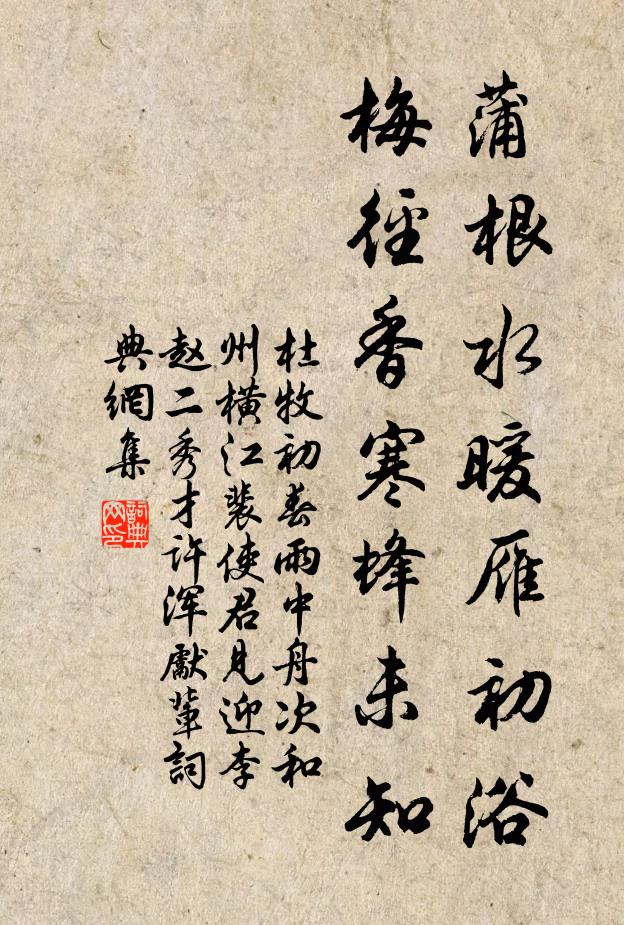 蒲根水暖雁初浴
梅徑香寒蜂未知
杜牧初春雨中舟次和
州橫江裴使君見迎李
赵二秀才许浑獻輩詞
典網集
詞典
网印